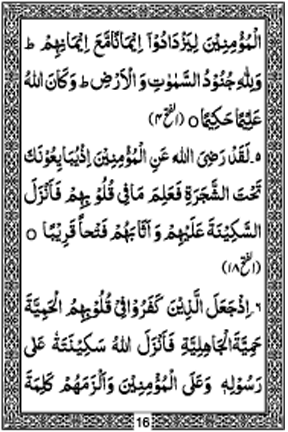 الْمُؤْمِنِيْنَ لِيَزْدَادُوْٓا اِيْمَانًا مَّعَ اِيْمَانِهِمْ ط
وَلِلّٰهِ جُنُوْدُ السَّمٰوٰتِ وَالْاَرْضِ ط وَكَانَ اللّٰهُ
عَلِيْمًا حَكِيْمًا ○ (الفتح ۴)
۵۔ لَقَدْ رَضِیَ اللّٰهُ عَنِ الْمُؤْمِنِيْنَ اِذْ يُبَايِعُوْنَكَ
تَحْتَ الشَّجَرَةِ فَعَلِمَ مَا فِیْ قُلُوْبِهِمْ فَاَنْزَلَ
السَّكِيْنَةَ عَلَيْهِمْ وَ اَثَابَهُمْ فَتْحاً قَرِيْبًا ○
(الفتح ۱۸)
۶۔ اِذْ جَعَلَ الَّذِيْنَ كَفَرُوْا فِیْ قُلُوْبِهِمُ الْحَمِيَّةَ
حَمِيَّةَ الْجَاهِلِيَّةِ فَاَنْزَلَ اللّٰهُ سَكِيْنَتَهٗ عَلٰی
رَسُوْلِهٖ وَعَلَی الْمُؤْمِنِيْنَ وَاَلْزَمَهُمْ كَلِمَةَ
16